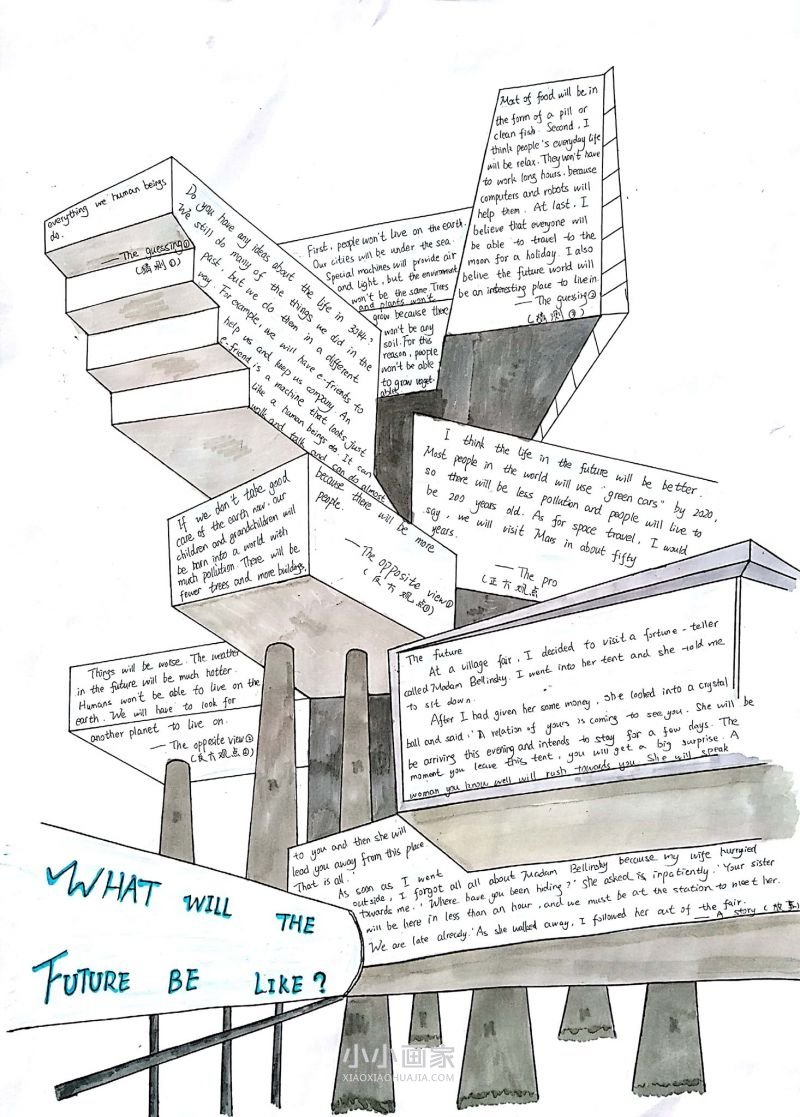 WHAT WILL THE
FUTURE BE LIKE?
Do you have any ideas about the life in 3044?
We still do many of the things we did in the
past, but we do them in a different
way. For example, we will have e-friends to
help us and keep us company. An
e-friend is a machine that looks just
like a human beings do. It can
walk and talk and can do almost
everything we human beings
do.
— The guessing①
(猜测①)
First, people won't live on the earth.
Our cities will be under the sea.
Special machines will provide air
and light, but the environment
won't be the same. Trees
and plants won't
grow because there
won't be any
soil. For this
reason, people
won't be able
to grow veget-
ables.
Most of food will be in
the form of a pill or
clean fish. Second, I
think people's everyday life
will be relax. They won't have
to work long hours, because
computers and robots will
help them. At last, I
believe that everyone will
be able to travel to the
moon for a holiday. I also
belive the future world will
be an interesting place to live in.
— The guesing②
(猜测②)
I think the life in the future will be better.
Most people in the world will use "green cars" by 2020,
so there will be less pollution and people will live to
be 200 years old. As for space travel, I would
say, we will visit Mars in about fifty
years.
— The pro
(正方观点
If we don't take good
care of the earth now, our
children and grandchildren will
be born into a world with
much pollution. There will be
fewer trees and more buildings
because there will be more
people.
— The opposite view①
(反方观点①)
Things will be worse. The weather
in the future will be much hotter.
Humans won't be able to live on the
earth. We will have to look for
another planet to live on.
— The opposite view②
(反方观点②)
The future
At a village fair, I decided to visit a fortune-teller
called Madam Bellinsky. I went into her tent and she told me
to sit down.
After I had given her some money, she looked into a crystal
ball and said: 'A relation of yours is coming to see you. She will be
be arriving this evening and intends to stay for a few days. The
moment you leave this tent, you will get a big surprise. A
woman you know well will rush towards you. She will speak
to you and then she will
lead you away from this place
That is all.'
As soon as I went
outside, I forgot all all about Madam Bellinsky because my wife hurryied
towards me. 'Where have you been hiding?' She asked is inpatiently. 'Your sister
will be here in less than an hour, and we must be at the station to meet her.
We are late already.' As she walked away, I followed her out of the fair.
— A story (故事)
小小画家
XIAOXIAOHUAJIA.COM